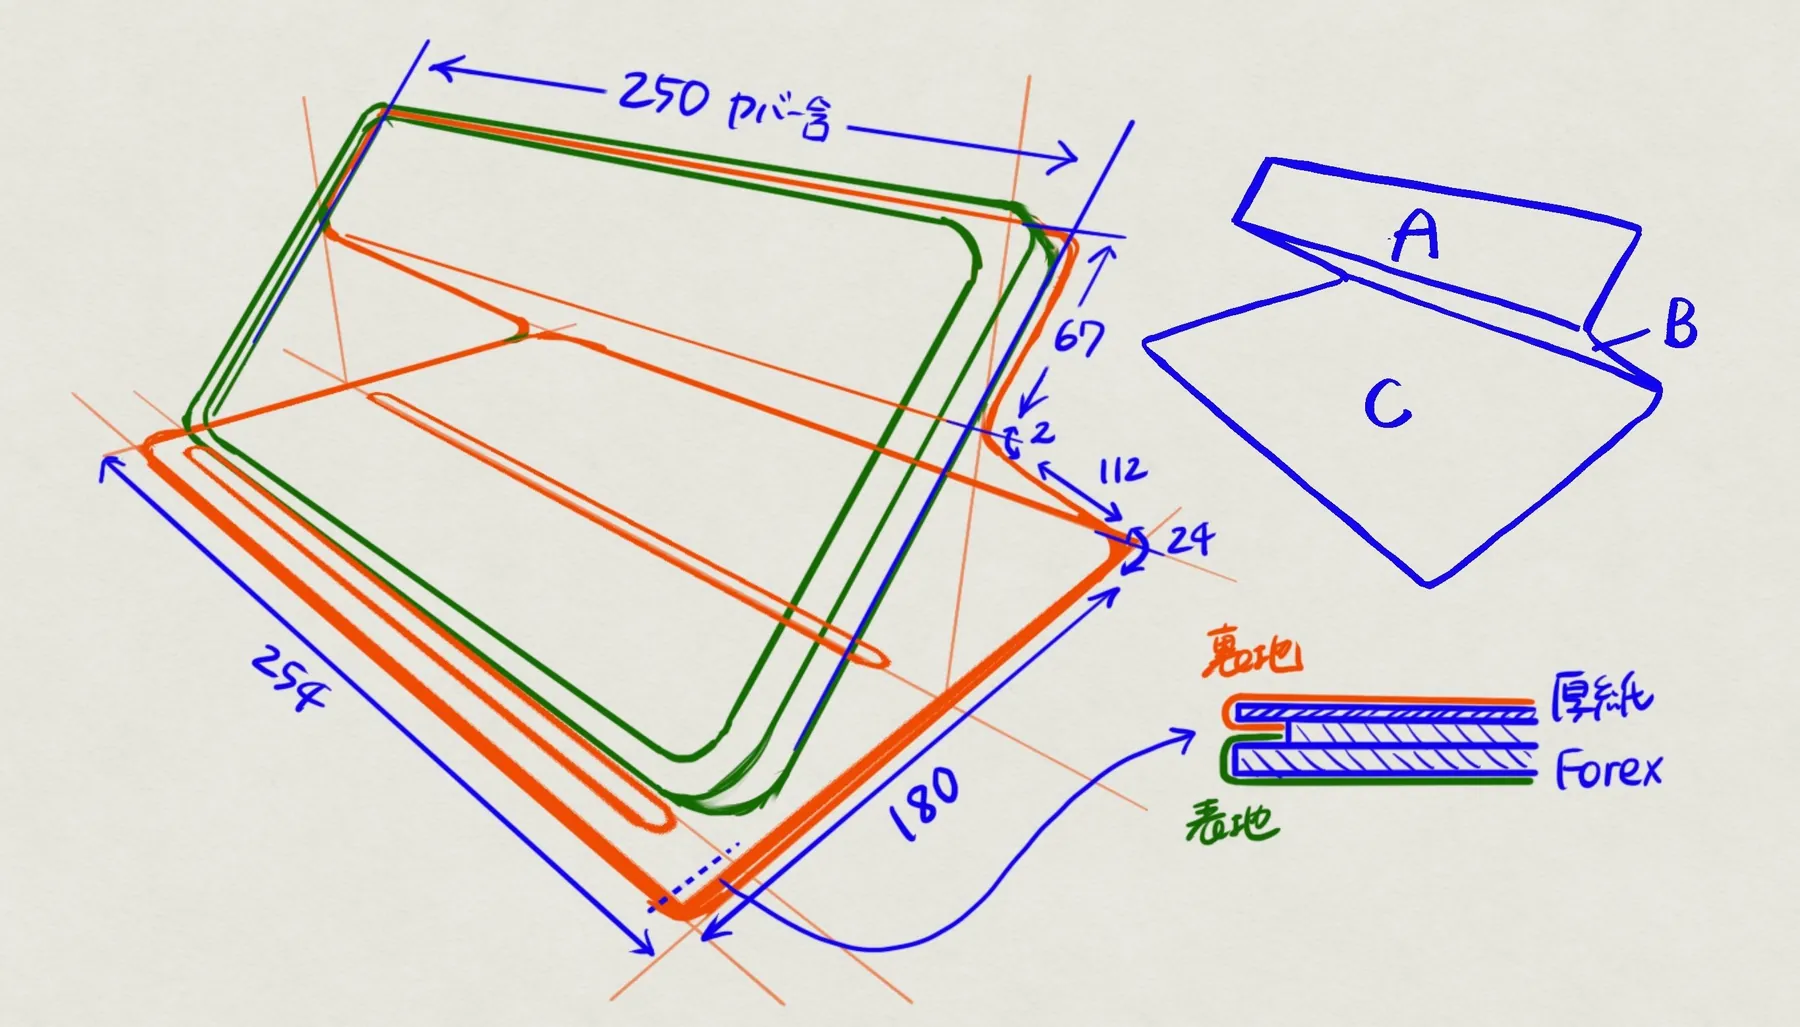 250 カバー含
67
2
112
24
254
180
A
B
C
裏地
厚紙
Forex
表地